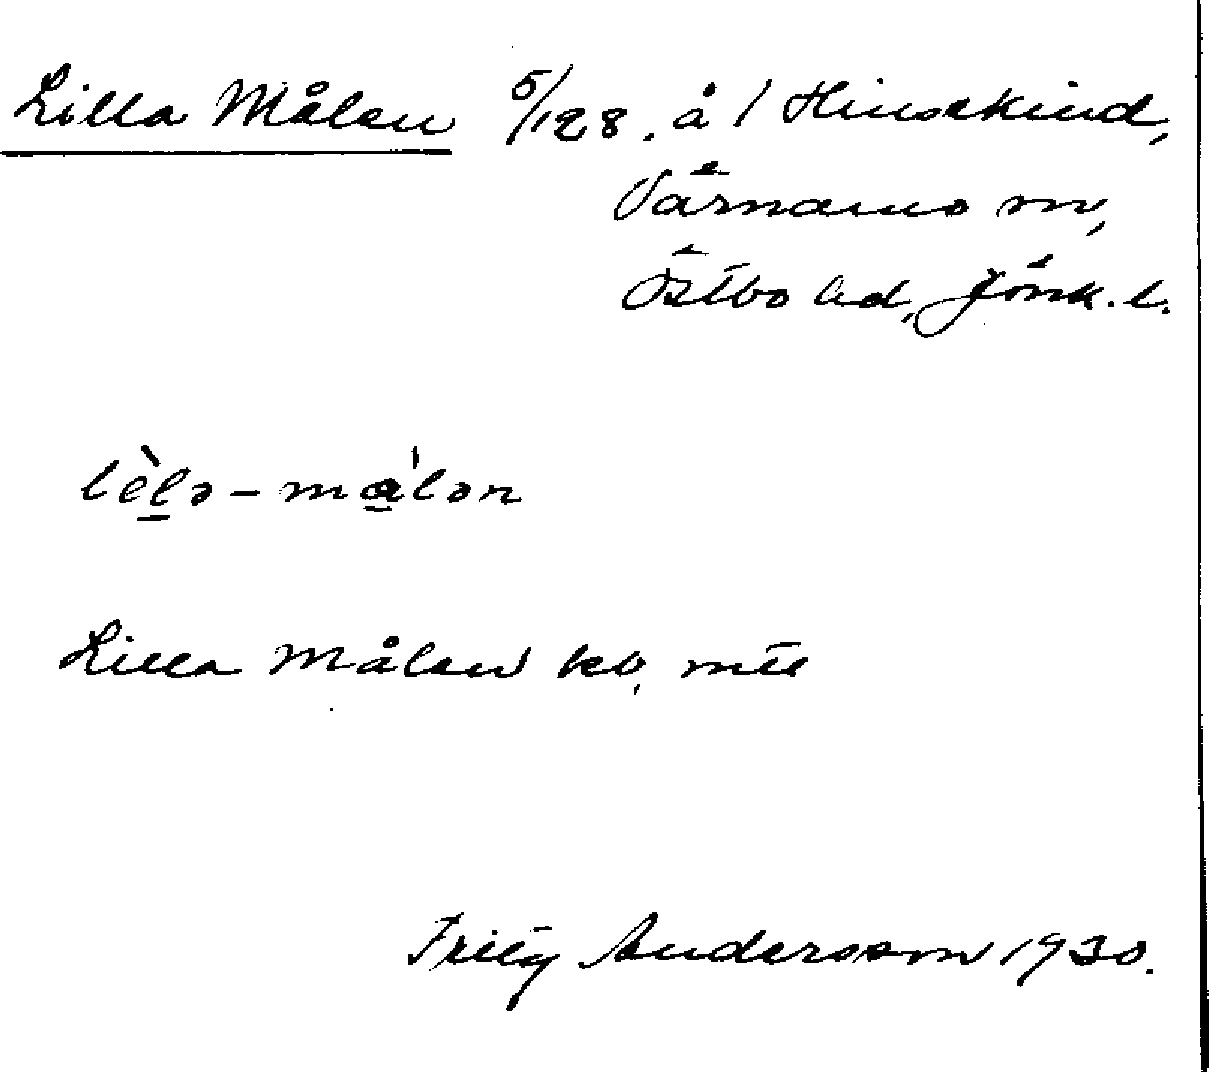 Lilla Målen 5/128. å 1 Hinsekind,
Värnamo sn,
Östbo hd, Jönk. l.
lèlə-målən
Lilla Målen kb,
Andersson 1930.